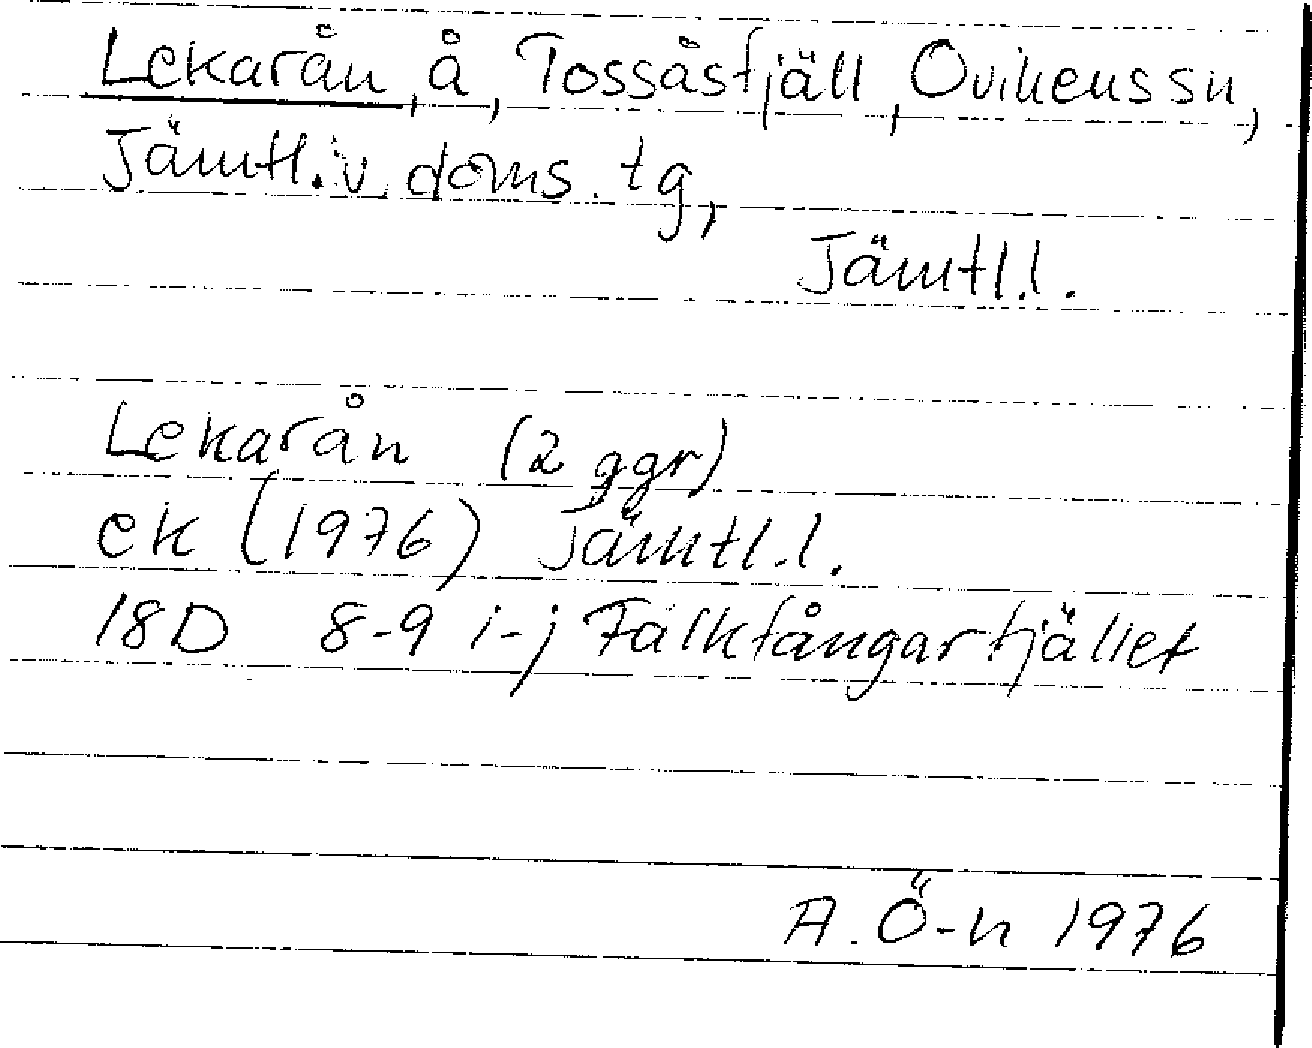 Lekarån, å, Tossåsfjäll, Ovikens sn,
Jämtl. v. doms. tg,
Jämtl. l.
Lekarån (2 ggr)
ek (1976) Jämtl. l.
18D 8-9 i-j Falkfångarfjället
A. Ö-n 1976